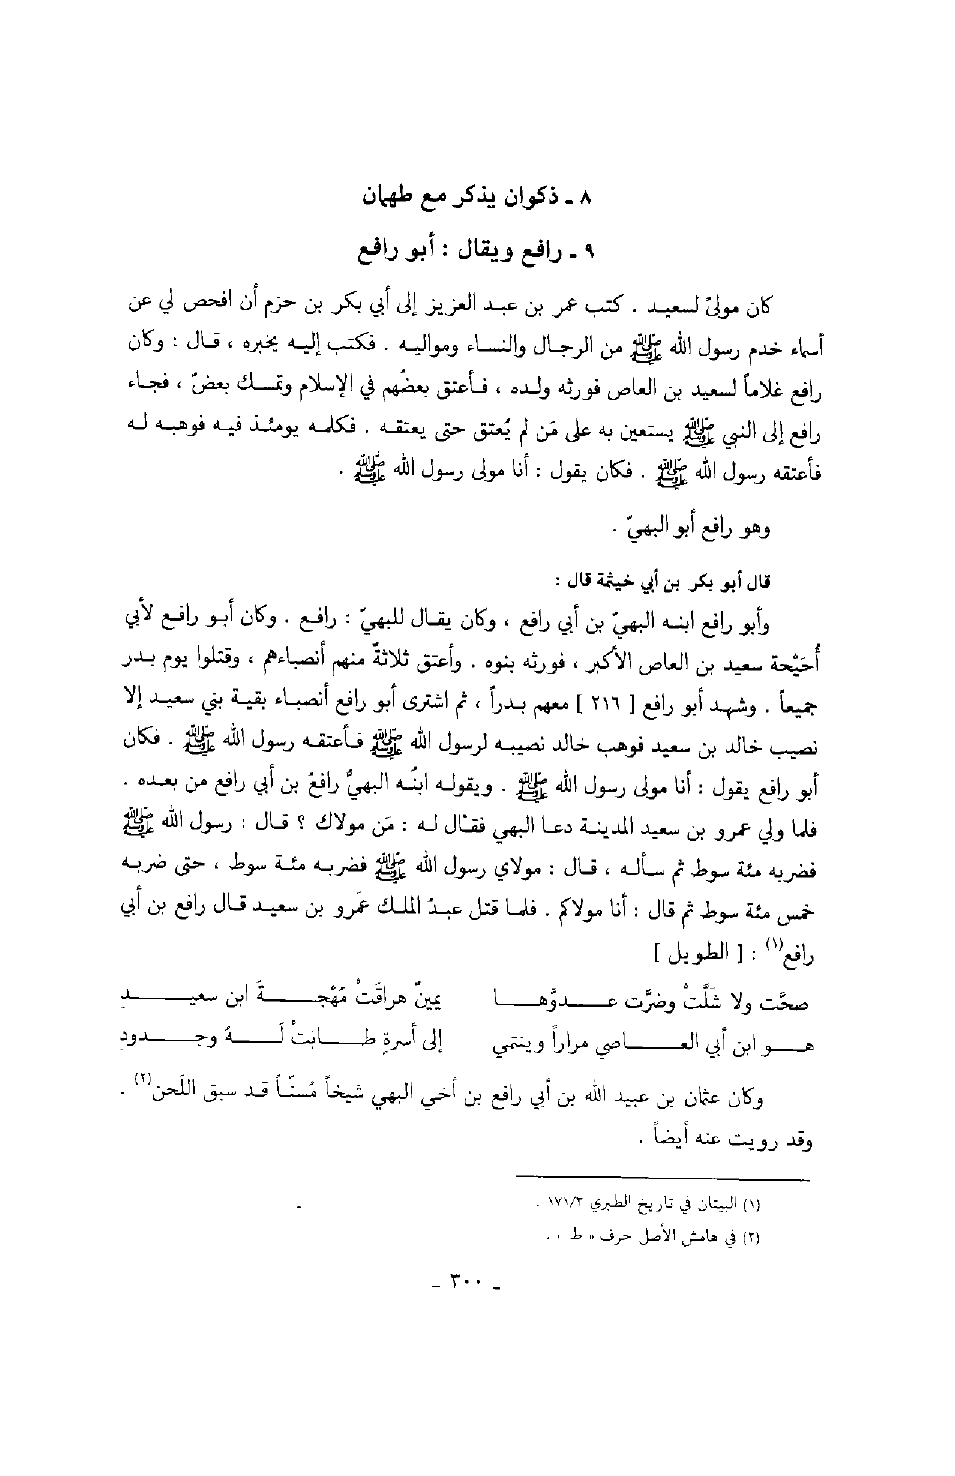 ٨ ـ ذكوان يذكر مع طهمان
٩ ـ رافع ويقال : أبو رافع
كان مولىً لسعيد . كتب عمر بن عبد العزيز إلى أبي بكر بن حزم أن افحص لي عن
أسماء خدم رسول الله ﷺ من الرجال والنساء ومواليه . فكتب إليه يخبره ، قال : وكان
رافع غلاماً لسعيد بن العاص فورثه ولده ، فأعتق بعضُهم في الإسلام وتمسك بعضٌ ، فجاء
رافع إلى النبي ﷺ يستعين به على مَن لم يُعتق حتى يعتقه . فكلمه يومئذ فيه فوهبه له
فأعتقه رسول الله ﷺ . فكان يقول : أنا مولى رسول الله ﷺ .
وهو رافع أبو البهيّ .
قال أبو بكر بن أبي خيثمة قال :
وأبو رافع ابنه البهيّ بن أبي رافع ، وكان يقال للبهيّ : رافع . وكان أبو رافع لأبي
أُحَيْحة سعيد بن العاص الأكبر ، فورثه بنوه . وأعتق ثلاثةٌ منهم أنصباءهم ، وقتلوا يوم بدر
جميعاً . وشهد أبو رافع [ ٢١٦ ] معهم بدراً ، ثم اشترى أبو رافع أنصباء بقية بني سعيد إلا
نصيب خالد بن سعيد فوهب خالد نصيبه لرسول الله ﷺ فأعتقه رسول الله ﷺ . فكان
أبو رافع يقول : أنا مولى رسول الله ﷺ . ويقوله ابنُه البهيُّ رافعُ بن أبي رافع من بعده .
فلما ولي عمرو بن سعيد المدينة دعا البهي فقال له : مَن مولاك ؟ قال : رسول الله ﷺ
فضربه مئة سوط ثم سأله ، قال : مولاي رسول الله ﷺ فضربه مئة سوط ، حتى ضربه
خمس مئة سوط ثم قال : أنا مولاكم . فلما قتل عبدُ الملك عمرو بن سعيد قال رافع بن أبي
رافع(١) : [ الطويل ]
صحَّت ولا شَلَّتْ وضرَّت عدوَّها يمينٌ هراقَتْ مُهْجةَ ابن سعيد
هو ابن أبي العاصي مراراً وينتمي إلى أسرةٍ طابتْ لَهُ وجدودِ
وكان عثمان بن عبيد الله بن أبي رافع بن أخي البهي شيخاً مُسنّاً قد سبق اللَحن(٢) .
وقد رويت عنه أيضاً .
(١) البيتان في تاريخ الطبري ١٧١/٣ .
(٢) في هامش الأصل حرف « ط » .
ـ ٣٠٠ ـ